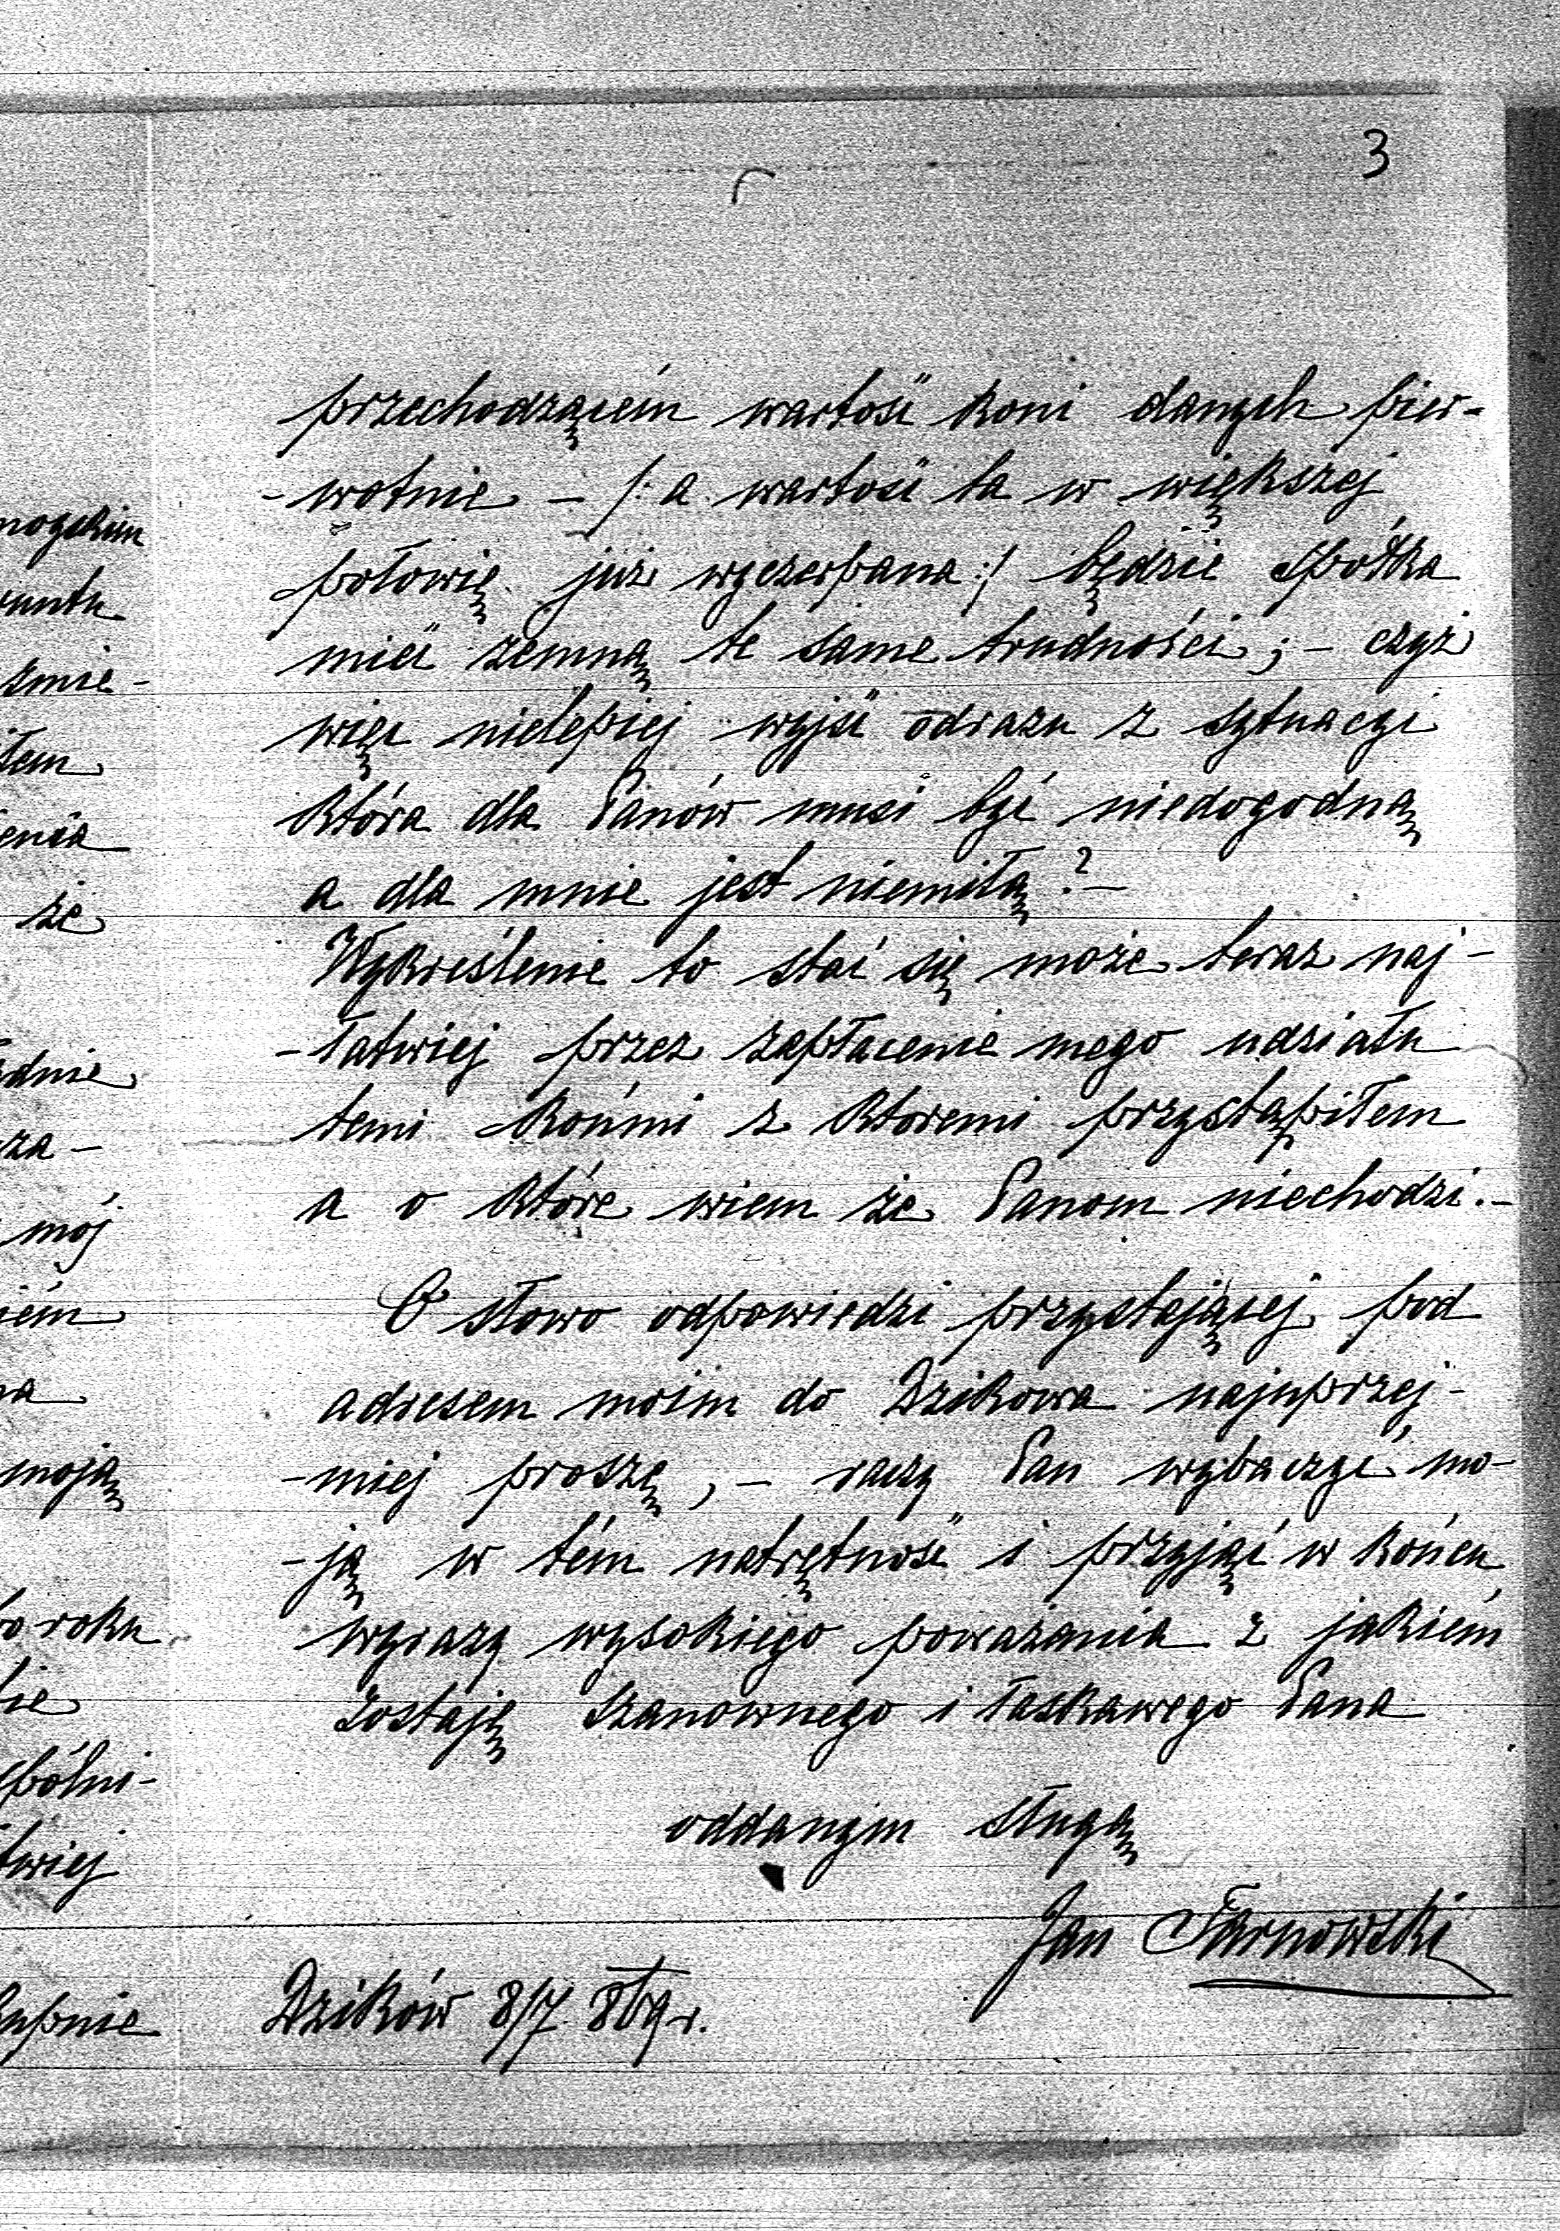 3
przechodzącém wartość koni danych pier-
-wotnie - /: a wartość ta w większej
połowię już wyczerpana :/ będzie spółka
mieć zemną te same trudności; - czyż
więc nielepiej wyjść odrazu z sytuacyi
która dla Panów musi być niedogodną
a dla mnie jest niemiłą? -
Wykreślenie to stać się może teraz naj-
-łatwiej przez zapłacenie mego udziału
temi końmi z któremi przystąpiłem
a o które wiem że Panom niechodzi. -
O słowo odpowiedzi przystającej pod
adresem moim do Dzikowa najuprzej-
-miej proszę, - raczy Pan wybaczyć mo-
-ją w tém natrętność i przyjąć w końcu
wyrazy wysokiego poważania z jakiém
zostaję Szanownego i łaskawego Pana
oddanym sługą
Jan Tarnowski
Dzików 8/7 869 r.
runtu
smie-
łem
enia
że
dnie
za-
mój
iém
na
moją
roku
spólni-
twiej
kupnie